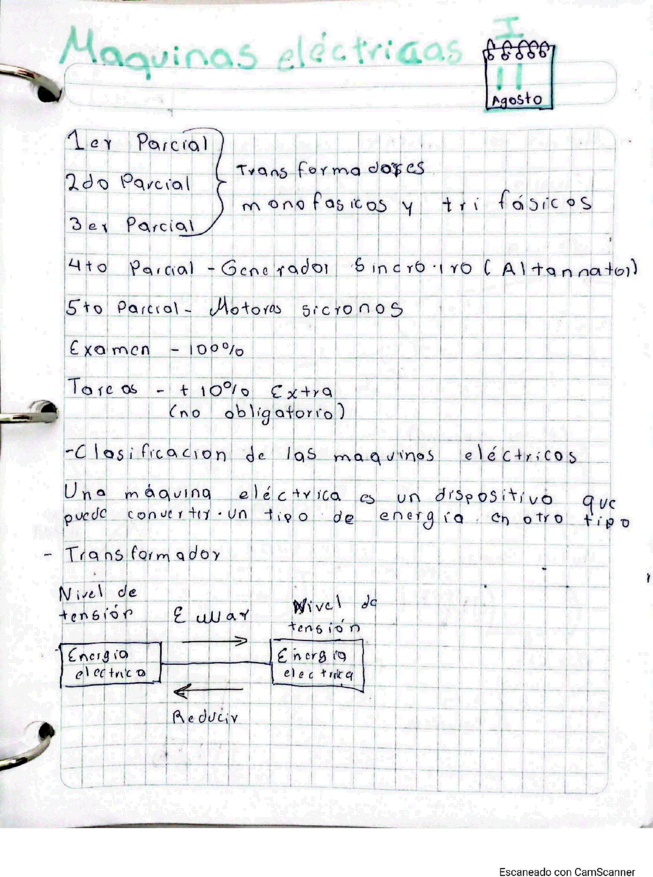 Maquinas eléctricas I
11
Agosto
1er Parcial
2do Parcial
3er Parcial
Transformadores
monofasicos y trifásicos
4to Parcial - Generador Sincróniro (Altannator)
5to Parcial - Motores sicronos
Examen - 100%
Tareas - + 10% Extra
(no obligatorio)
- Clasificacion de las maquinas eléctricas
Una máquina eléctrica es un dispositivo que
puede convertir un tipo de energía en otro tipo
- Transformador
Nivel de
tensión
Nivel de
tensión
Energia
electrica
Energia
electrica
Reducir
Escaneado con CamScanner